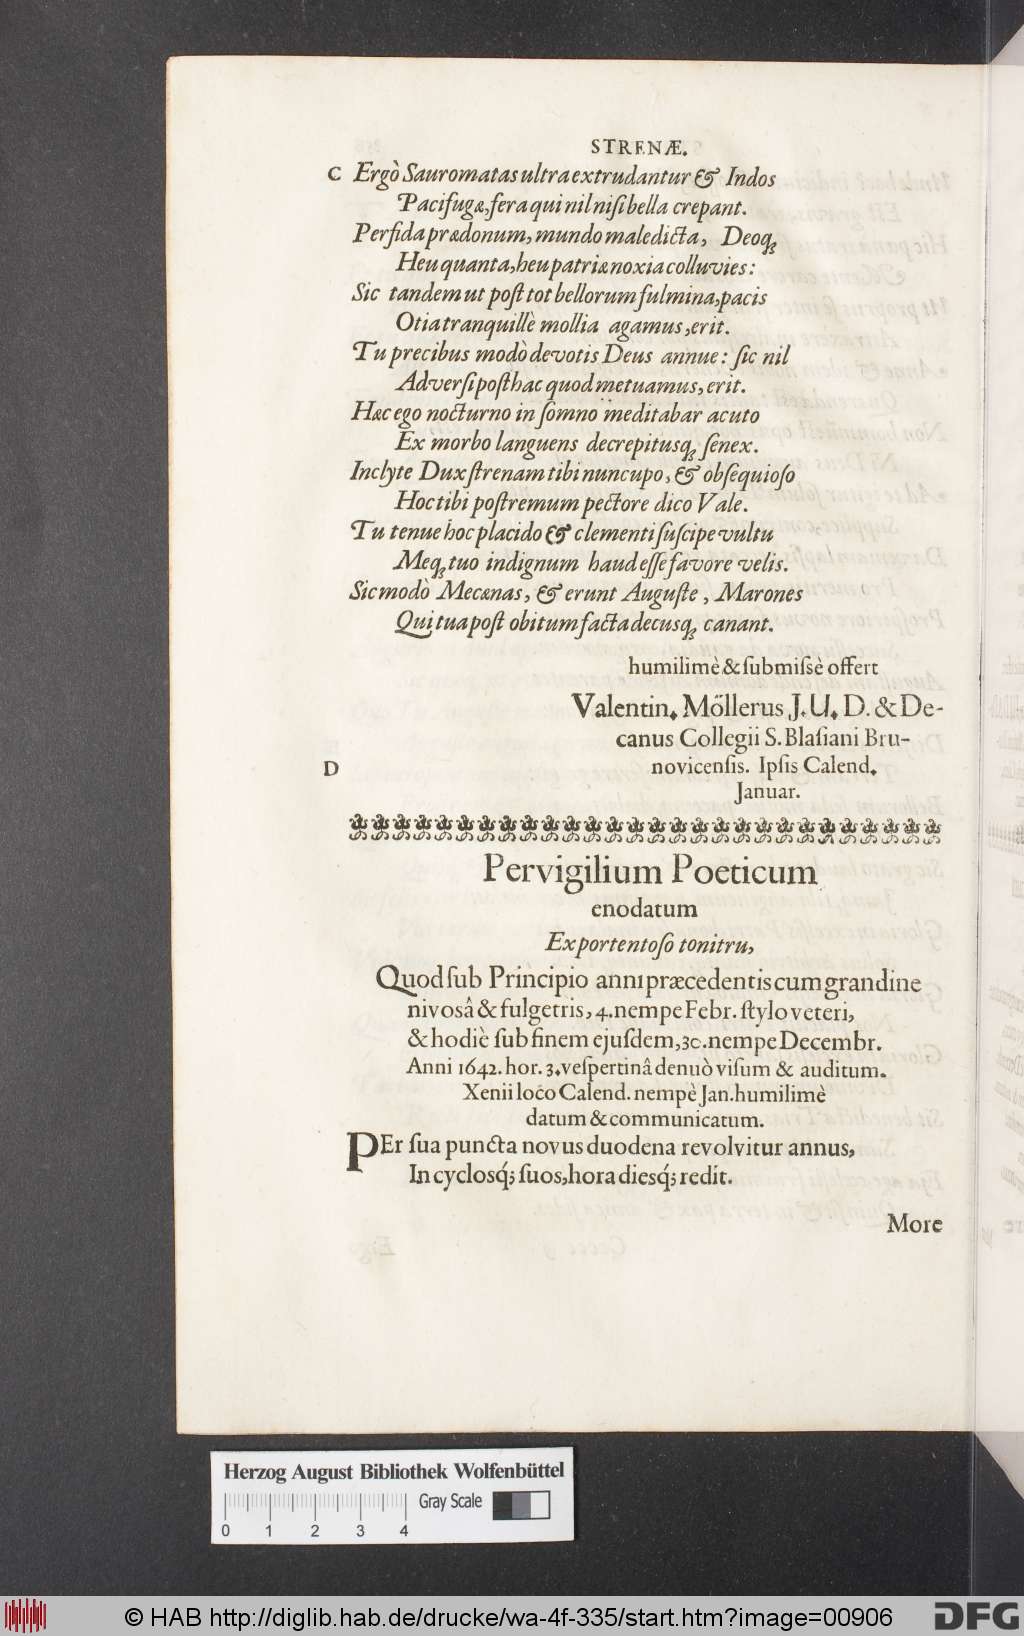 STRENÆ.
C Ergò Sauromatas ultra extrudantur & Indos
Pacifugæ, fera qui nil nisi bella crepant.
Perfida prædonum, mundo maledicta, Deoq́ꝫ
Heu quanta, heu patriæ noxia colluvies:
Sic tandem ut post tot bellorum fulmina, pacis
Otia tranquillè mollia agamus, erit.
Tu precibus modò devotis Deus annue: sic nil
Adversi posthac quod metuamus, erit.
Hæc ego nocturno in somno meditabar acuto
Ex morbo languens decrepitusqꝫ senex.
Inclyte Dux strenam tibi nuncupo, & obsequioso
Hoc tibi postremum pectore dico Vale.
Tu tenue hoc placido & clementi suscipe vultu
Meqꝫ tuo indignum haud esse favore velis.
Sic modò Mecænas, & erunt Auguste, Marones
Qui tua post obitum facta decusqꝫ canant.
humilimè & submissè offert
Valentin. Möllerus J. U. D. & De-
canus Collegii S. Blasiani Bru-
D novicensis. Ipsis Calend.
Januar.
Pervigilium Poeticum
enodatum
Ex portentoso tonitru,
Quod sub Principio anni præcedentis cum grandine
nivosâ & fulgetris, 4. nempe Febr. stylo veteri,
& hodiè sub finem ejusdem, 30. nempe Decembr.
Anni 1642. hor. 3. vespertinâ denuò visum & auditum.
Xenii locô Calend. nempè Jan. humilimè
datum & communicatum.
PEr sua puncta novus duodena revolvitur annus,
In cyclosq́ꝫ suos, hora diesq́ꝫ redit.
More
Herzog August Bibliothek Wolfenbüttel
Gray Scale
0 1 2 3 4
© HAB http://diglib.hab.de/drucke/wa-4f-335/start.htm?image=00906
DFG